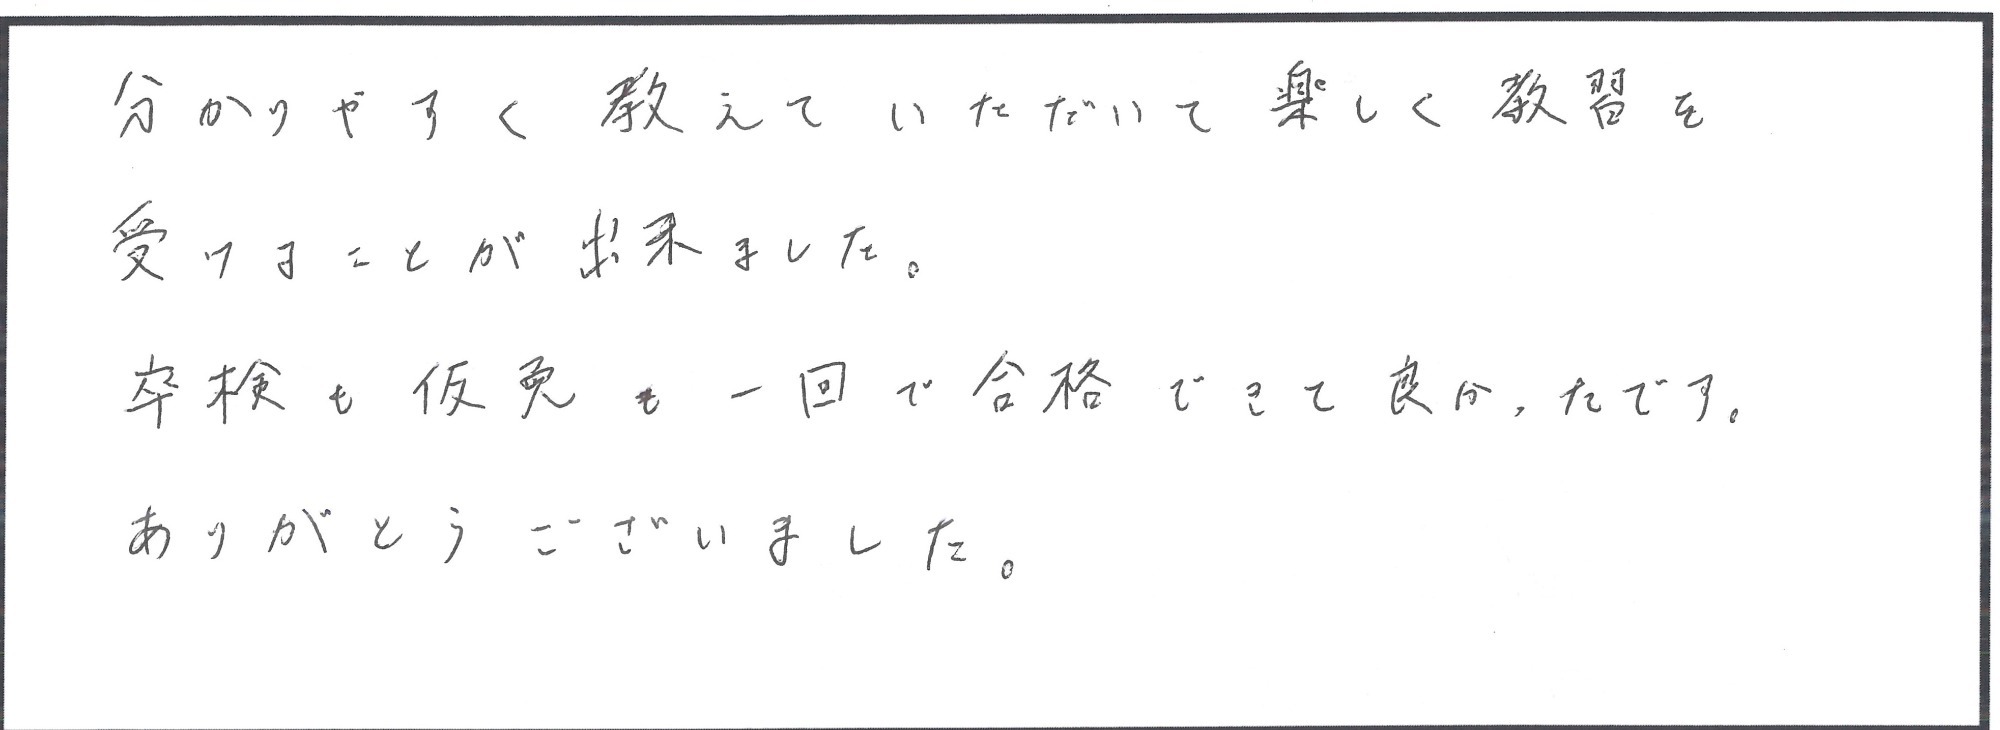 分かりやすく教えていただいて楽しく教習を
受けることが出来ました。
卒検も仮免も一回で合格できて良かったです。
ありがとうございました。